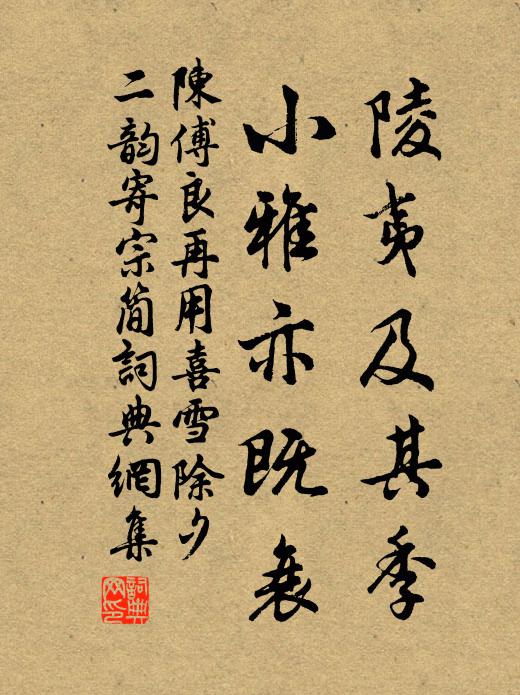 陵夷及其季
小雅亦既衰
陳傅良再用喜雪除夕
二韵寄宗簡詞典網集
詞典网印